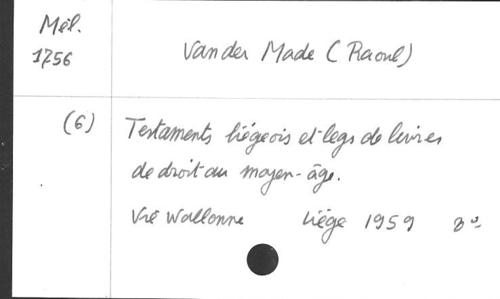 Mél.
1756
Vander Made (Raoul)
(6)
Testaments liégeois et legs de livres
de droit au moyen-âge.
Vie Wallonne Liège 1959 8°